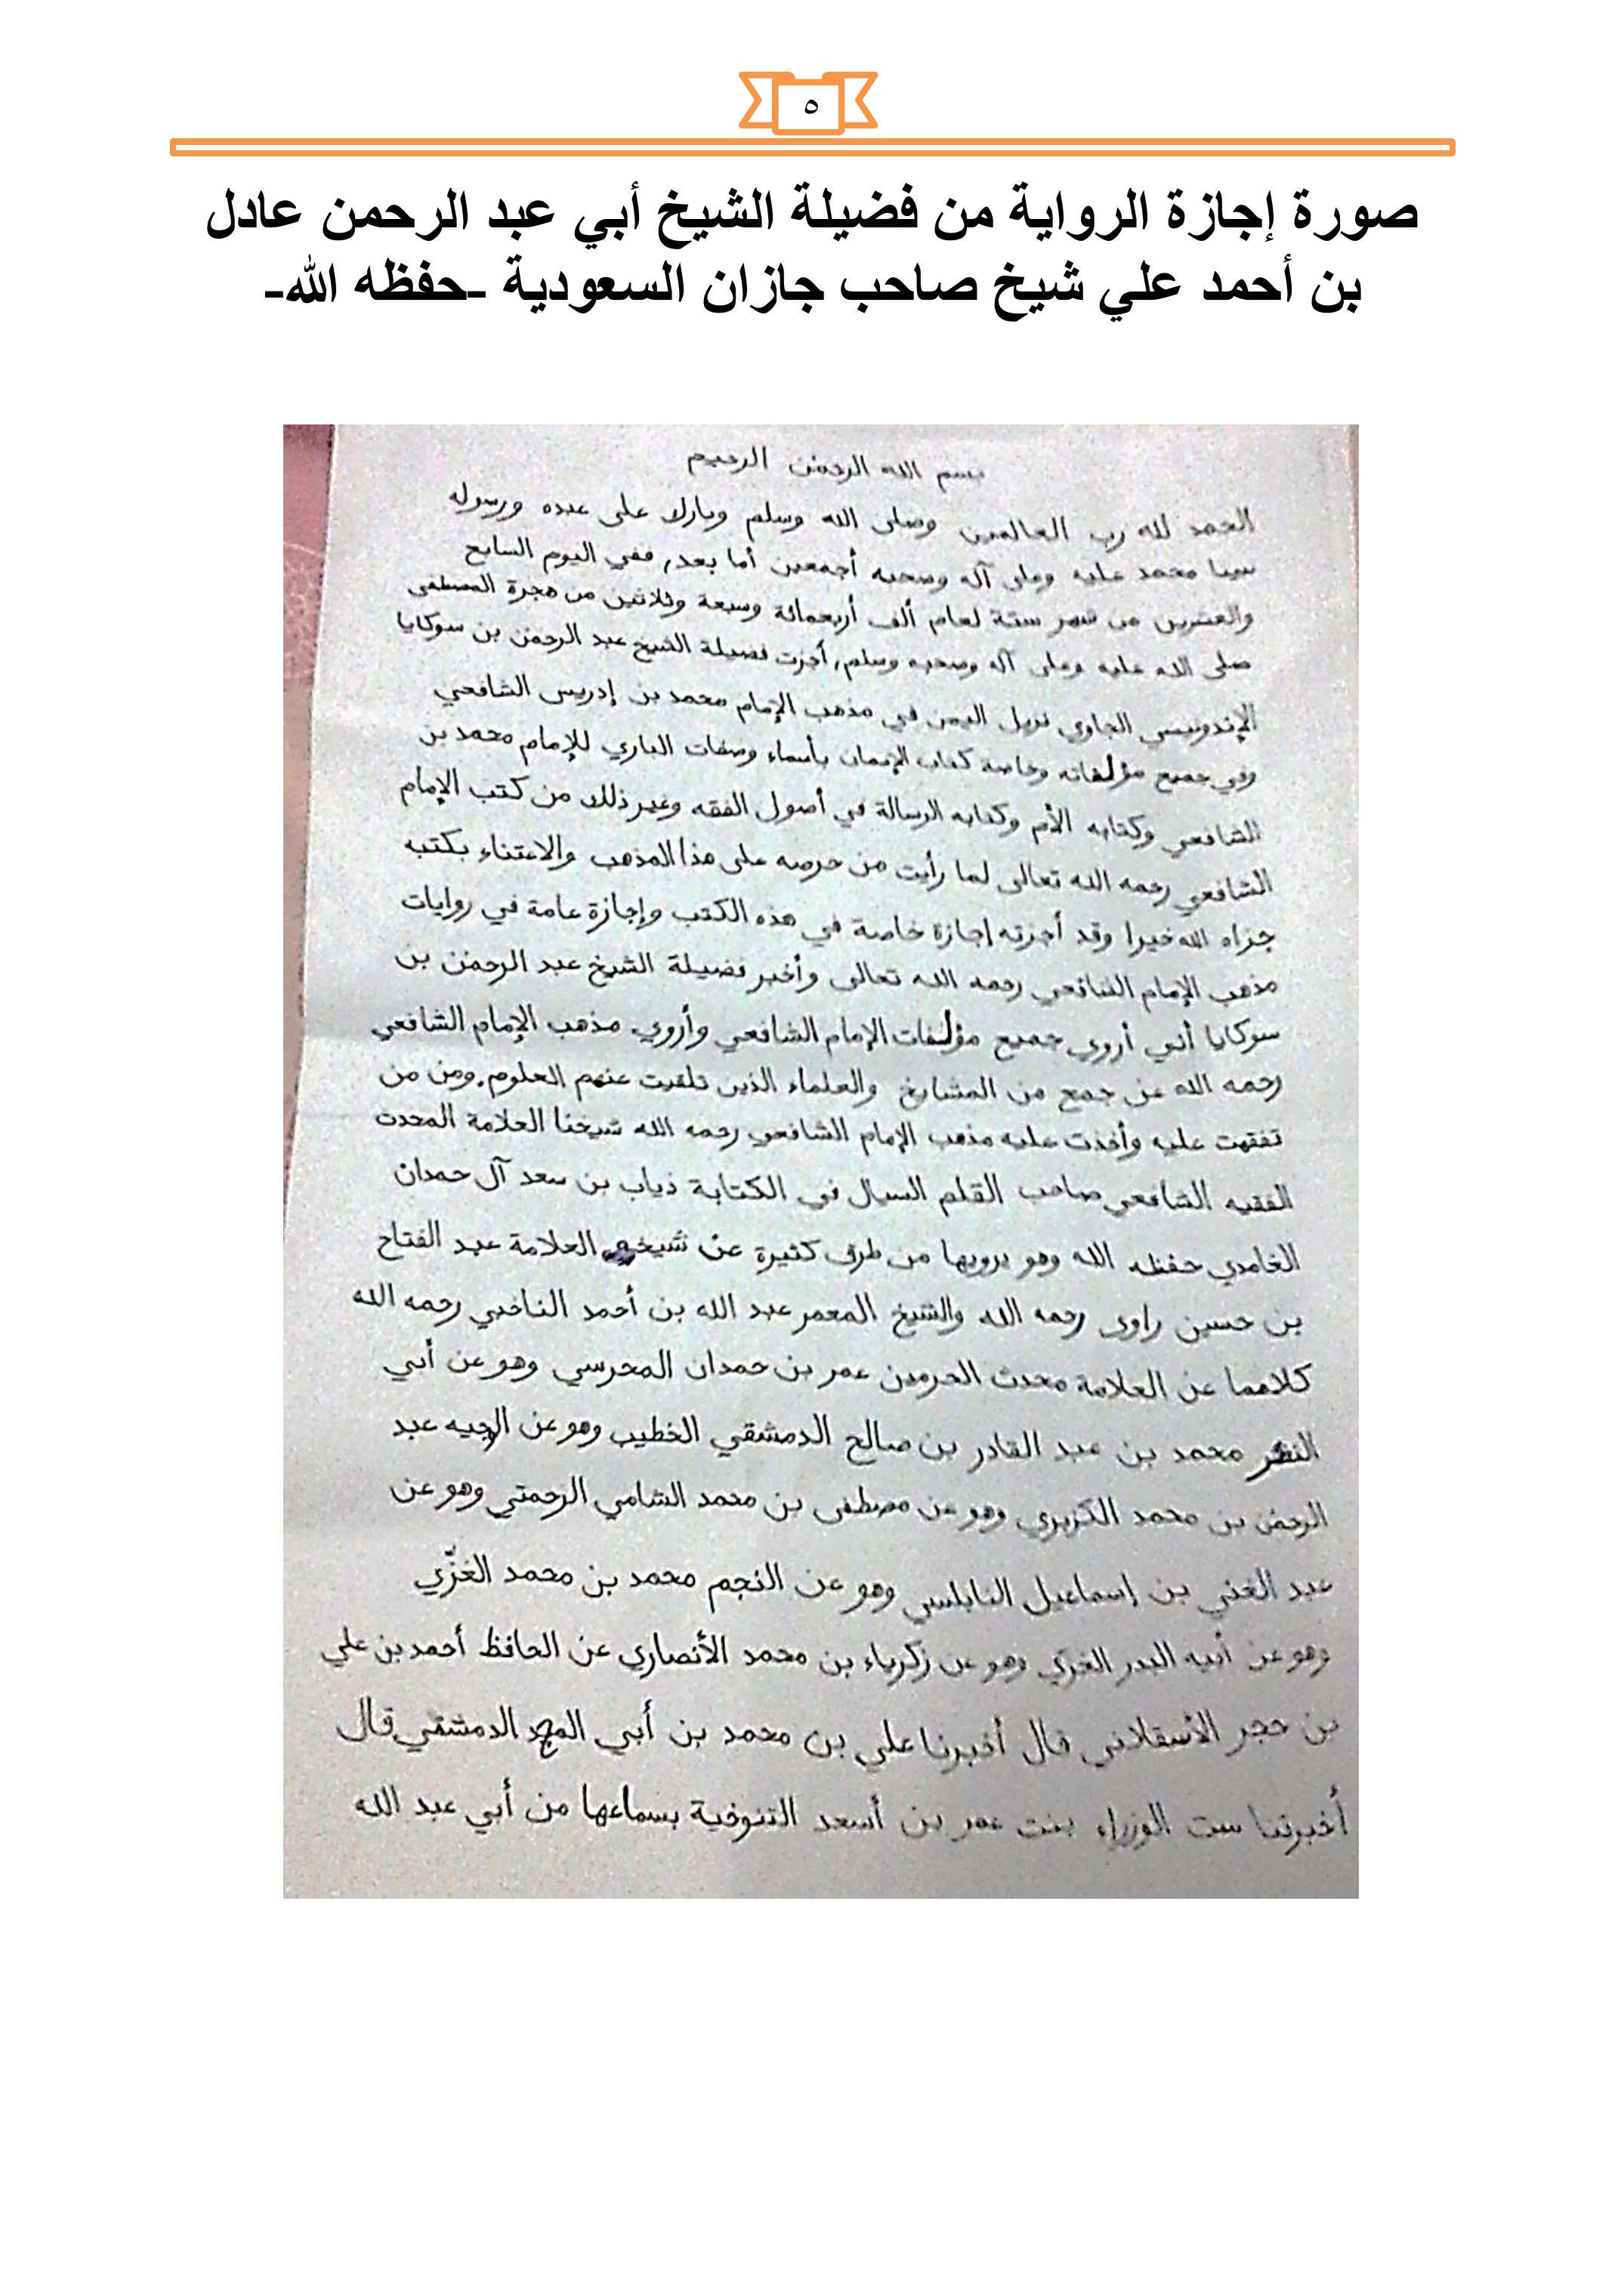 ٥
صورة إجازة الرواية من فضيلة الشيخ أبي عبد الرحمن عادل
بن أحمد علي شيخ صاحب جازان السعودية -حفظه الله-
بسم الله الرحمن الرحيم
الحمد لله رب العالمين وصلى الله وسلم وبارك على عبده ورسوله
محمد عليه وعلى آله وصحبه أجمعين أما بعد, ففي اليوم السابع
والعشرين من شهر ستة لعام ألف أربعمائة وسبعة وثلاثين من هجرة المصطفى
صلى الله عليه وعلى آله وصحبه وسلم, أجزت فضيلة الشيخ عبد الرحمن بن سوكايا
الإندونيسي الجاوي نزيل اليمن في مذهب الإمام محمد بن إدريس الشافعي
وفي جميع مؤلفاته وخاصة كتاب بأسماء وصفات الباري للإمام محمد بن
الشافعي وكتابه الأم وكتابه الرسالة في أصول الفقه وغير ذلك من كتب الإمام
الشافعي رحمه الله تعالى لما رأيت من حرصه على هذا المذهب والاعتناء بكتبه
جزاه الله خيرا وقد أجزته إجازة خاصة في هذه الكتب وإجازة عامة في روايات
مذهب الإمام الشافعي رحمه الله تعالى وأخبر فضيلة الشيخ عبد الرحمن بن
سوكايا أني أروي جميع مؤلفات الإمام الشافعي وأروي مذهب الإمام الشافعي
رحمه الله عن جمع من المشايخ والعلماء الذين تلقيت عنهم العلوم. ومن من
تفقهت عليه وأخذت عليه مذهب الإمام الشافعي رحمه الله شيخنا العلامة المحدث
الفقيه الشافعي صاحب القلم السيال في الكتابة ذياب بن سعد آل حمدان
الغامدي حفظه الله وهو يرويها من طرق كثيرة عن شيخه العلامة عبد الفتاح
بن حسين راوى رحمه الله والشيخ المعمر عبد الله بن أحمد الناخبي رحمه الله
كلاهما عن العلامة محدث الحرمين عمر بن حمدان المحرسي وهو عن أبي
النصر محمد بن عبد القادر بن صالح الدمشقي الخطيب وهو عن الوجيه عبد
الرحمن بن محمد الكزبري وهو عن مصطفى بن محمد الشامي الرحمتي وهو عن
عبد الغني بن إسماعيل النابلسي وهو عن النجم محمد بن محمد الغزّي
وهو عن أبيه البدر الغزي وهو عن زكرياء بن محمد الأنصاري عن الحافظ أحمد بن علي
بن حجر الأسقلاني قال أخبرنا علي بن محمد بن أبي المجد الدمشقي قال
أخبرتنا ست الوزراء بنت عمر بن أسعد التنوخية بسماعها من أبي عبد الله